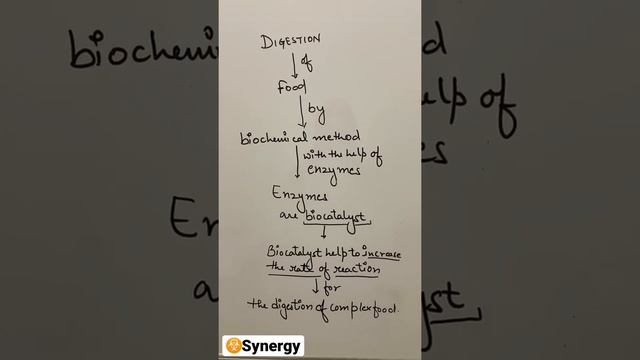 DIGESTION
of
Food
by
biochemical method
with the help of
enzymes
Enzymes
are biocatalyst
Biocatalyst help to increase
the rate of reaction
for
the digestion of complex food.
Synergy